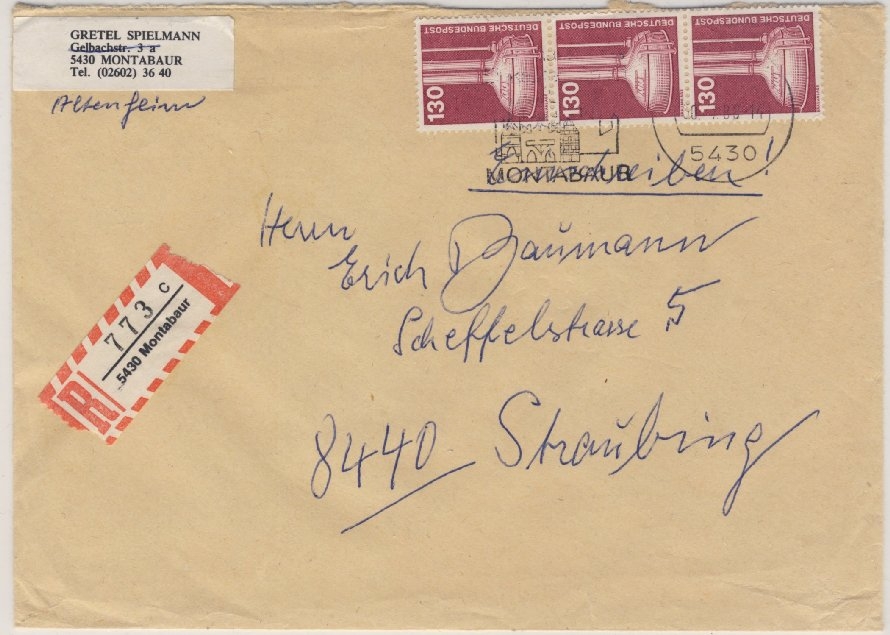 GRETEL SPIELMANN
Gelbachstr. 3 a
5430 MONTABAUR
Tel. (02602) 36 40
Altenheim
DEUTSCHE BUNDESPOST
130
DEUTSCHE BUNDESPOST
130
DEUTSCHE BUNDESPOST
130
5430
MONTABAUR
Einschreiben!
Herrn
Erich Baumann
Scheffelstrasse 5
8440 Straubing
R
773 C
5430 Montabaur